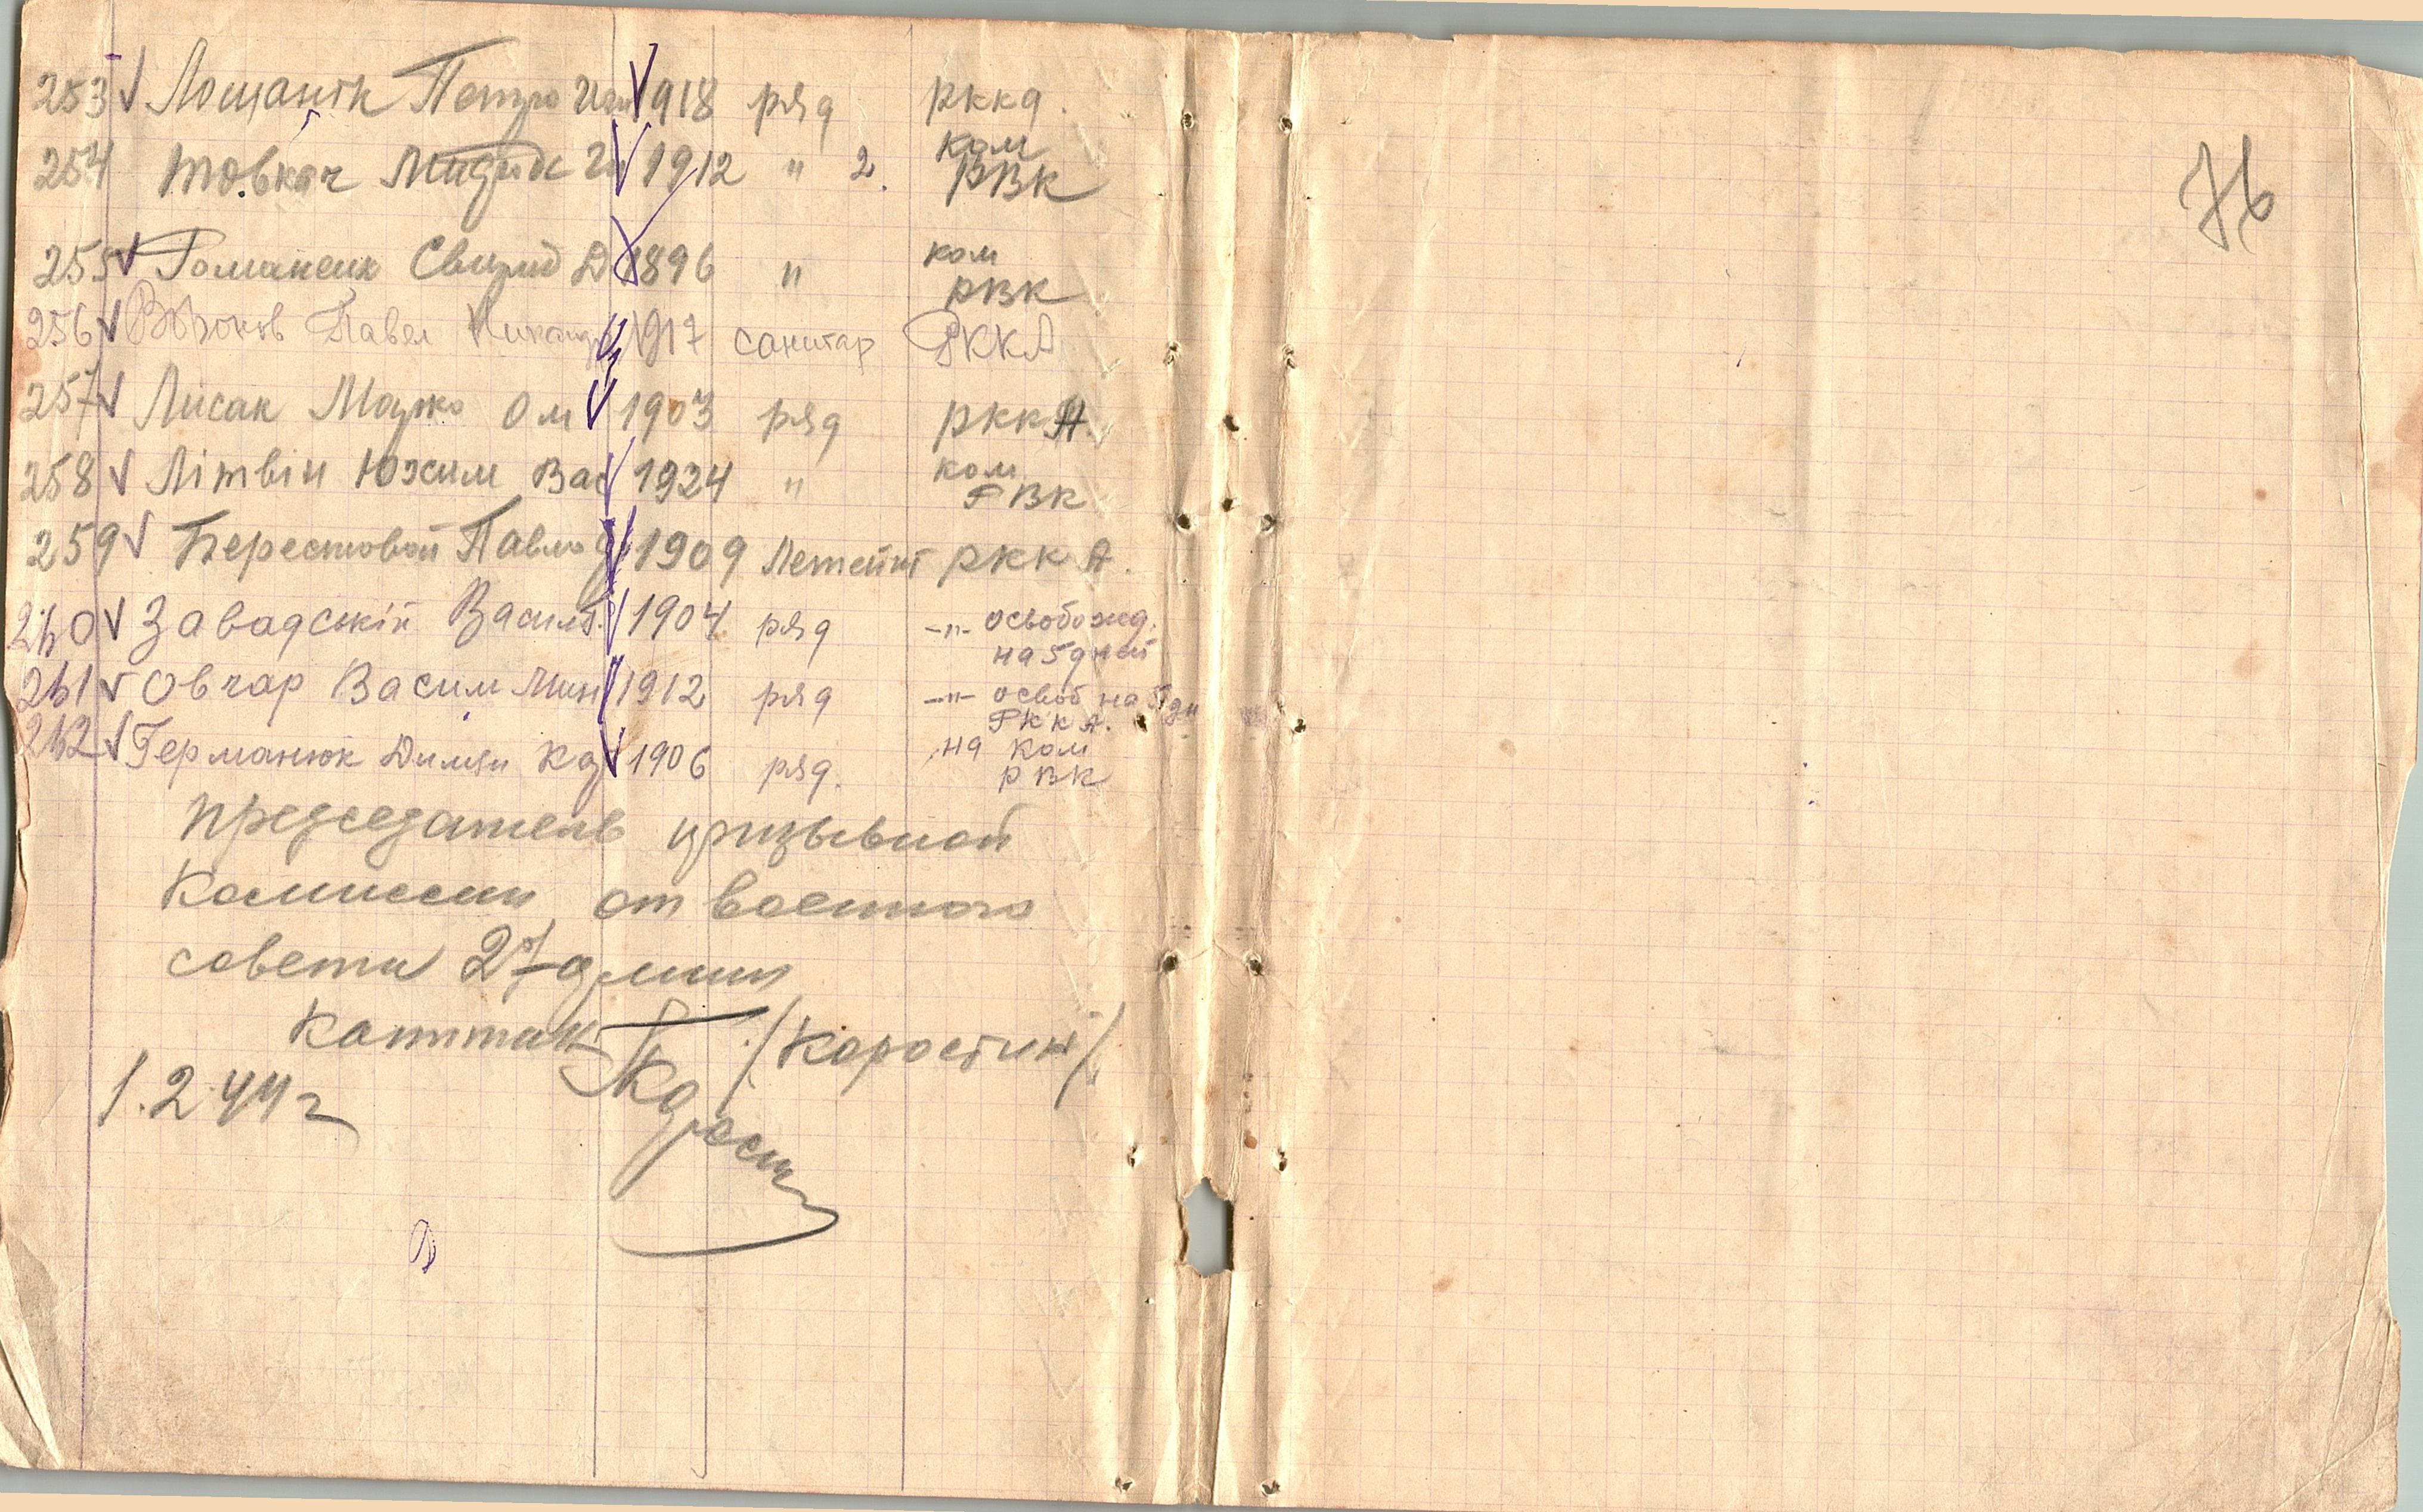 253 Лощанік Петро 1918 ряд РККА.
254 Товкач 1912 " 2. ком РВК
255 Романюк Свирид Д 1896 " ком РВК
256 Павел 1917 санитар РККА
257 Лисак Марко Ом 1903 ряд РККА.
258 Літвін Юхим Вас 1924 " ком РВК
259 Берестовой Павло 1909 РККА.
260 Завадскій Васил 1904 ряд -"- освобожд. на 5 дней
261 Овчар Васил 1912 ряд -"- освоб на 5 дн РККА.
262 Германюк Димян 1906 ряд. на ком РВК
председатель призывной
комиссии от военного
совета 27 армии
капитан /Коростин/
1.2 44 г
76